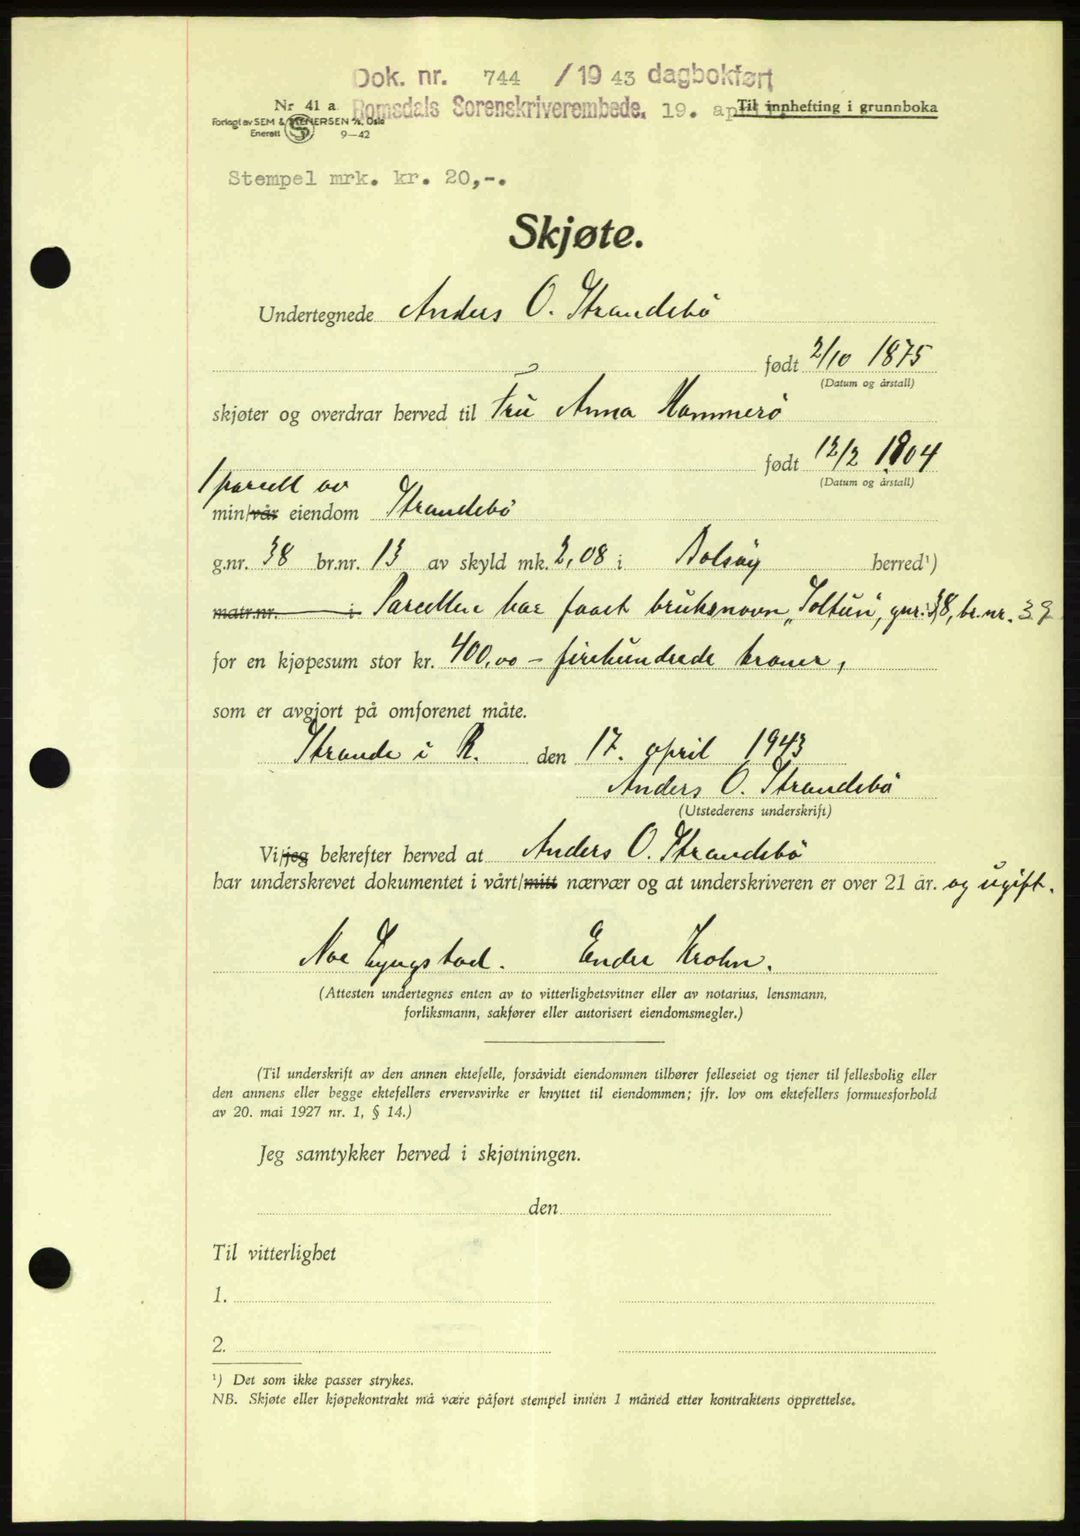 Dok. nr. 744 /19 43 dagbokført
Nr 41 a Romsdals Sorenskriverembede. 19. april Til innhefting i grunnboka
Forlagt av SEM & STENERSEN A/S, Oslo
Enerett 9—42
Stempel mrk. kr. 20,-.
Skjøte.
Undertegnede Anders O. Strandebø
født 2/10 1875
(Datum og årstall)
skjøter og overdrar herved til Fru Anna Hammerø
født 12/2 1904
(Datum og årstall)
1 parsell av
min/vår eiendom Strandebø
g.nr. 38 br.nr. 13 av skyld mk. 2,08 i Bolsøy herred¹)
matr.nr. i Parcellen har faaet bruksnavn „Soltun", gnr. 38, br.nr. 39
for en kjøpesum stor kr. 400,00 – firehundrede kroner,
som er avgjort på omforenet måte.
Strande i R. den 17. april 1943
Anders O. Strandebø
(Utstederens underskrift)
Vi/jeg bekrefter herved at Anders O. Strandebø
har underskrevet dokumentet i vårt/mitt nærvær og at underskriveren er over 21 år. og ugift.
Endre Krohn.
(Attesten undertegnes enten av to vitterlighetsvitner eller av notarius, lensmann,
forliksmann, sakfører eller autorisert eiendomsmegler.)
(Til underskrift av den annen ektefelle, forsåvidt eiendommen tilhører felleseiet og tjener til fellesbolig eller
den annens eller begge ektefellers ervervsvirke er knyttet til eiendommen; jfr. lov om ektefellers formuesforhold
av 20. mai 1927 nr. 1, § 14.)
Jeg samtykker herved i skjøtningen.
den
Til vitterlighet
1.
2.
¹) Det som ikke passer strykes.
NB. Skjøte eller kjøpekontrakt må være påført stempel innen 1 måned etter kontraktens opprettelse.